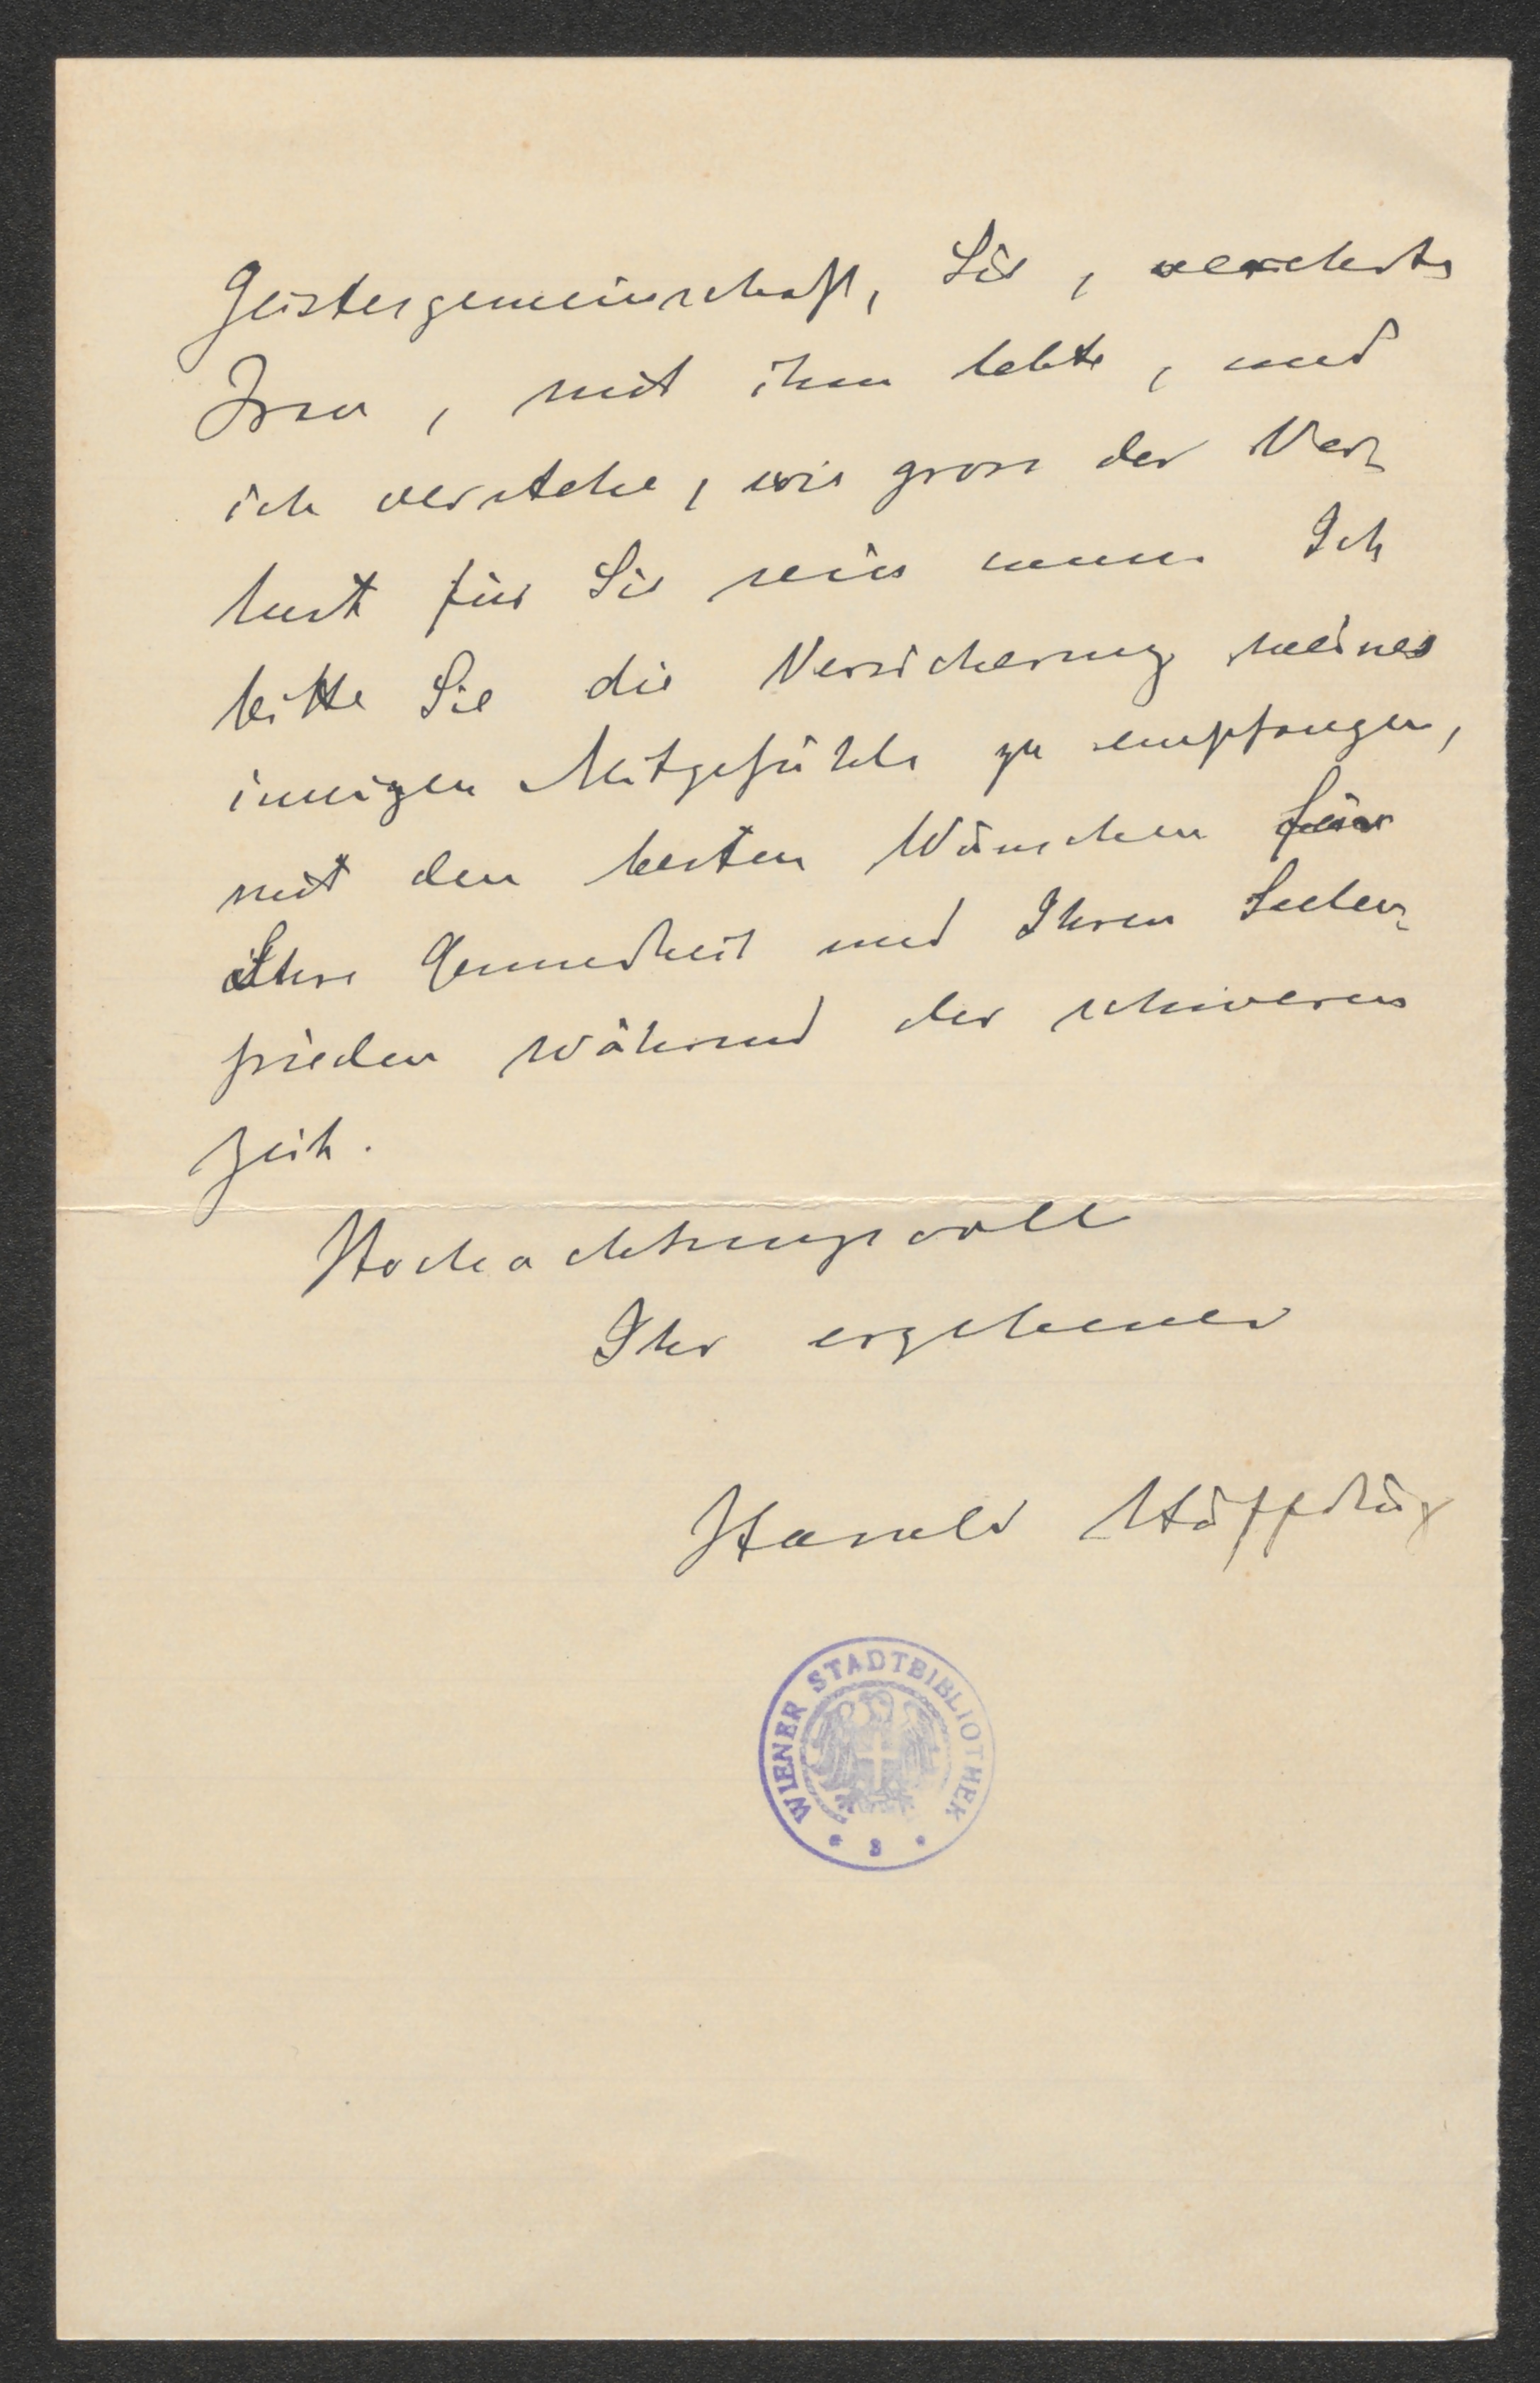 Geistergemeinschaft, Sie, verehrte
Frau, mit ihm lebte, und
ich verstehe, wie gross der Ver-
lust für Sie sein muss. Ich
bitte Sie die Versicherung meines
innigen Mitgefühls zu empfangen,
mit den besten Wünschen für
Ihre Gesundheit und Ihren Seelen-
frieden während der schweren
Zeit.
Hochachtungsvoll
Ihr ergebener
Harald Höffding
WIENER STADTBIBLIOTHEK